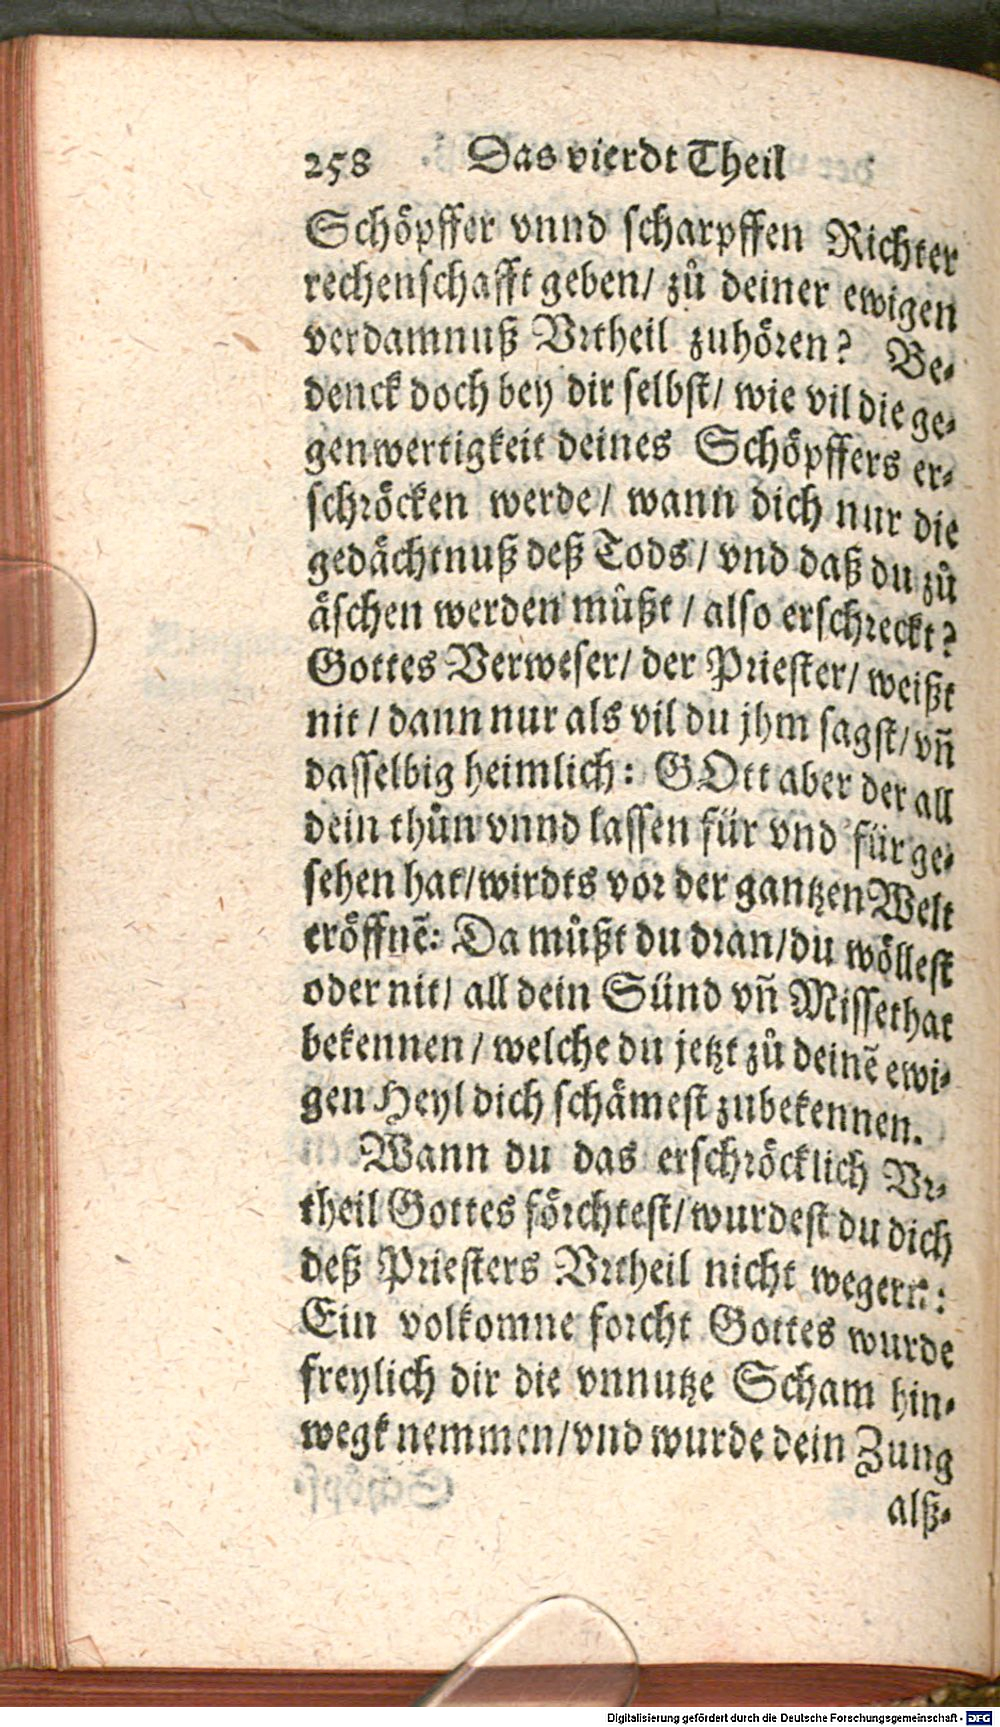 258 Das vierdt Theil
Schöpffer vnnd scharpffen Richter
rechenschafft geben/ zů deiner ewigen
verdamnuß Vrtheil zuhören? Be-
denck doch bey dir selbst/ wie vil die ge-
genwertigkeit deines Schöpffers er-
schröcken werde/ wann dich nur die
gedächtnuß deß Tods/ vnd daß du zů
äschen werden můßt/ also erschreckt?
Gottes Verweser/ der Priester/ weißt
nit/ dann nur als vil du jhm sagst/ vñ
dasselbig heimlich: GOtt aber der all
dein thůn vnnd lassen für vnd für ge-
sehen hat/ wirdts vor der gantzen Welt
eröffnẽ: Da můßt du dran/ du wöllest
oder nit/ all dein Sünd vñ Missethat
bekennen/ welche du jetzt zů deinẽ ewi-
gen Heyl dich schämest zubekennen.
Wann du das erschröcklich Vr-
theil Gottes förchtest/ wurdest du dich
deß Priesters Vrtheil nicht wegern:
Ein volkomne forcht Gottes wurde
freylich dir die vnnutze Scham hin-
wegk nemmen/ vnd wurde dein Zung
alß-
Digitalisierung gefördert durch die Deutsche Forschungsgemeinschaft - DFG